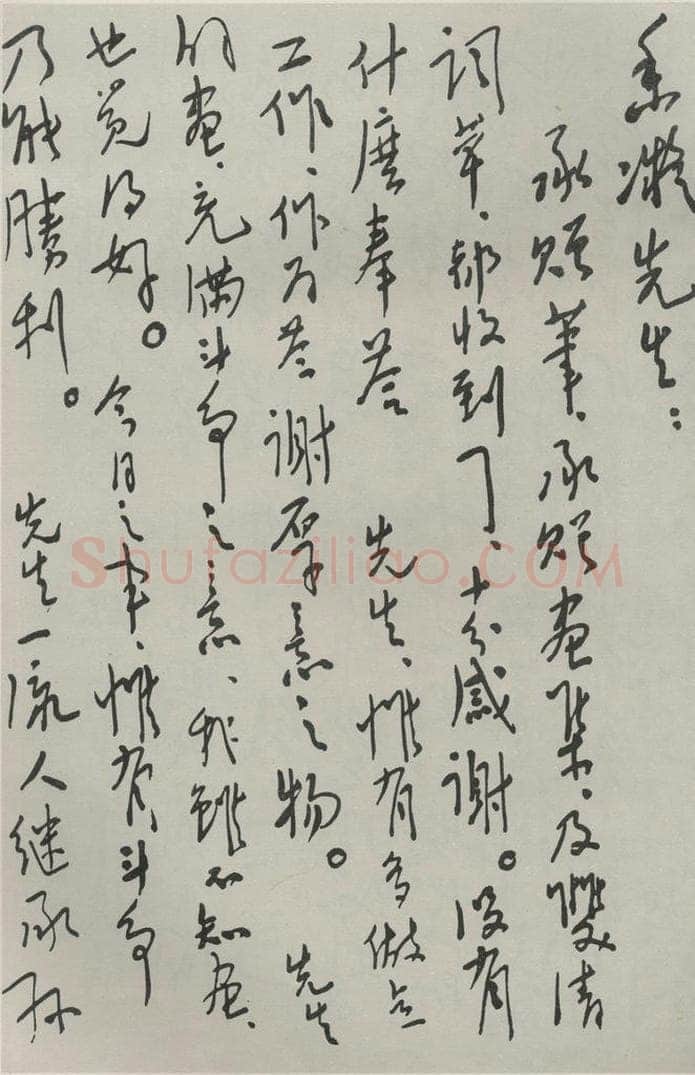 香凝先生：
承赐笔、承赐画集、及双清
词草、都收到了、十分感谢。没有
什麽奉荅　先生、惟有多做点
工作、作为荅谢厚意之物。　先生
的画、充满斗争之意、我虽不知画、
也觉得好。今日之事、惟有斗争
乃能胜利。　先生一流人继承孙
Shufaziliao.COM